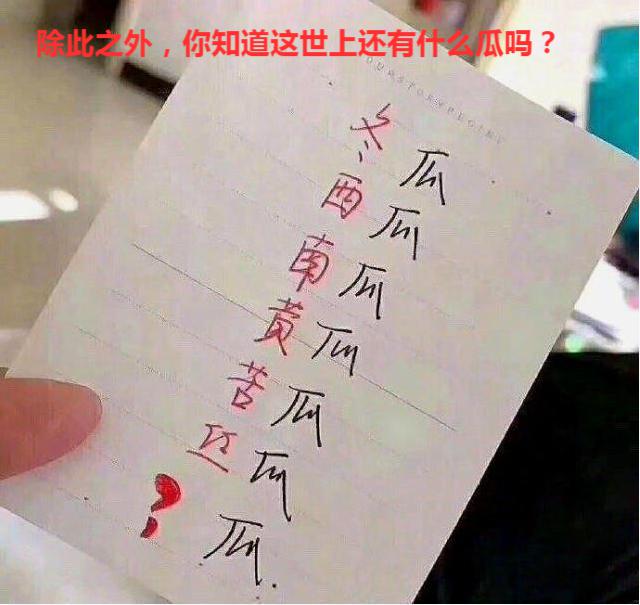 除此之外，你知道这世上还有什么瓜吗？
冬瓜
西瓜
南瓜
黄瓜
苦瓜
丝瓜
？瓜